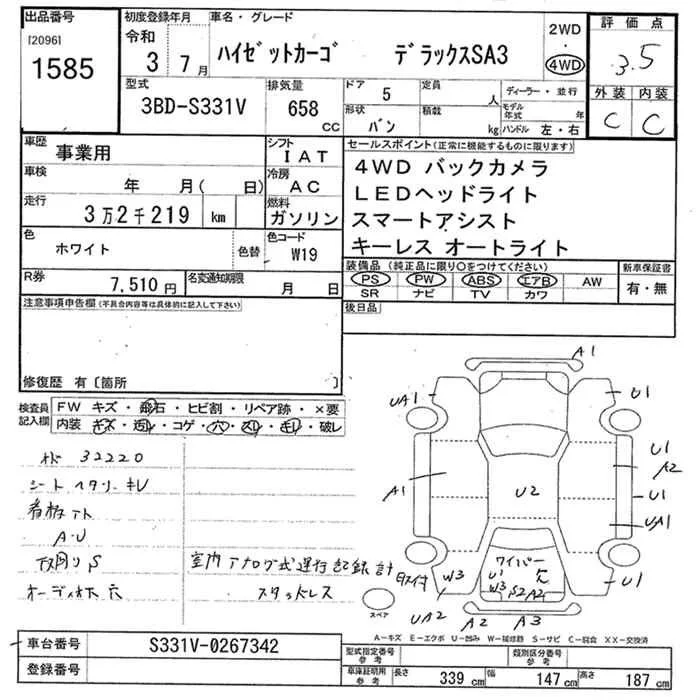 出品番号
[2096]
1585
初度登録年月
令和
3 7月
車名・グレード
ハイゼットカーゴ デラックスSA3
2WD
・
4WD
評価点
3.5
外装 内装
C C
型式
3BD-S331V
排気量
658
CC
ドア
5
定員
人
形状
バン
積載
kg
ディーラー・並行
モデル
年式 年
ハンドル 左・右
車歴
事業用
シフト
IAT
車検
年 月( 日)
冷房
AC
走行
3万2千219 km
燃料
ガソリン
色
ホワイト
色替
色コード
W19
R券
7,510円
名変通知期限
月 日
セールスポイント(正常に機能するものに限ります)
4WD バックカメラ
LEDヘッドライト
スマートアシスト
キーレス オートライト
装備品(純正品に限り○をつけてください)
PS PW ABS エアB AW
SR ナビ TV カワ
新車保証書
有・無
後日品
注意事項申告欄(不具合内容等は具体的に記入して下さい)
修復歴 有〔箇所 〕
検査員
記入欄
FW キズ・飛石・ヒビ割・リペア跡・×要
内装 キズ・汚レ・コゲ・穴・スレ・キレ・破レ
32220
シートヘタリ キレ
A・U
下廻りS
オーディオ欠 穴
室内アナログ式運行記録計
スタッドレス
A1
UA1
U1
A1
U2
U1
A2
U1
UA1
U1
ワイパー
欠
U1
W3 S2 A2
W3
UA2
A2
A3
スペア
A−キズ E−エクボ U−凹み W−補修跡 S−サビ C−腐食 XX−交換済
車台番号
S331V-0267342
登録番号
型式指定番号
参考
類別区分番号
参考
車庫証明用
参考
長さ 339 cm 幅 147 cm 高さ 187 cm